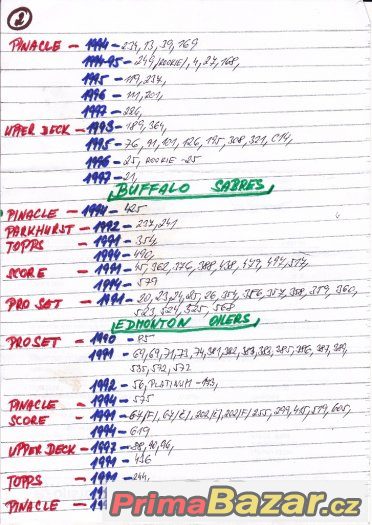 2
PINACLE - 1994 - 234, 13, 39, 169
1994-95 - 249 /ROOKIE/, 4, 27, 168,
1995 - 119, 237,
1996 - 111, 201,
1997 - 226,
UPPER DECK - 1993 - 189, 364,
1995 - 76, 91, 101, 126, 195, 308, 321, C14,
1996 - 25, ROOKIE -25
1997 - 21,
BUFFALO SABRES
PINACLE - 1994 - 425
PARKHURST - 1992 - 237, 241
TOPPS - 1991 - 354,
1994 - 490,
SCORE - 1991 - 45, 362, 376, 388, 438, 479, 494, 514,
1994 - 579
PRO SET - 1991 - 20, 23, 24, 25, 26, 354, 356, 357, 358, 359, 360,
523, 524, 525, 568
EDMONTON OILERS
PROSET - 1990 - 85
1991 - 69, 71, 73, 74, 381, 382, 383, 385, 386, 387,
535, 592, 572
1992 - 56, PLATINUM -
PINACLE - 1994 - 575
SCORE - 1991 - 64/F/, 202/F/ 255, 299, 415, 519, 605,
1994 - 619
UPPER DECK - 1997 - 38, 40, 96,
1991 - 436
TOPPS - 1991 - 244,
PINACLE -
PrimaBazar.cz